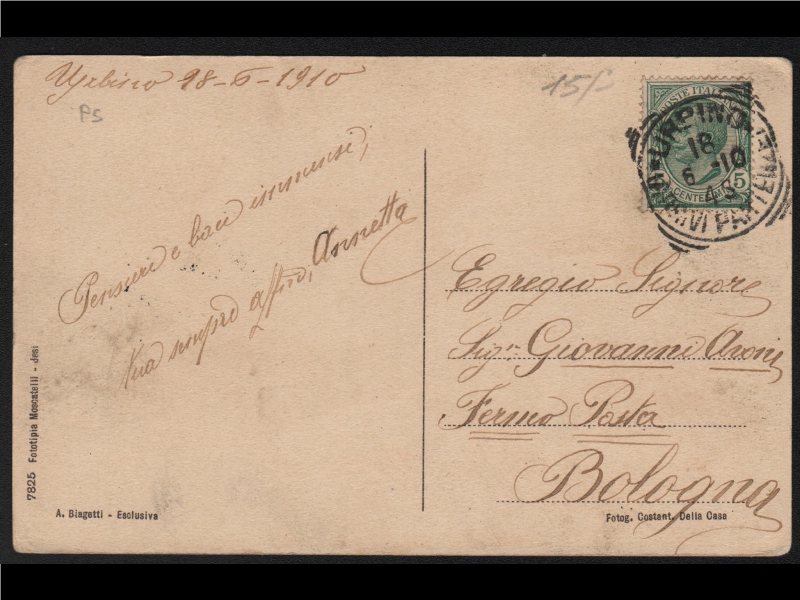 Urbino 18-6-1910
PS
15/-
POSTE ITALIANE
CENTESIMI 5
URBINO
18
6 -10
4 S
ARRIVI PARTENZE
Pensieri e baci immensi,
tua sempre affma, Annetta
Egregio Signore
Sigr. Giovanni Aroni
Fermo Posta
Bologna
7825 Fototipia Moscatelli - Jesi
A. Biagetti - Esclusiva
Fotog. Costant. Della Casa